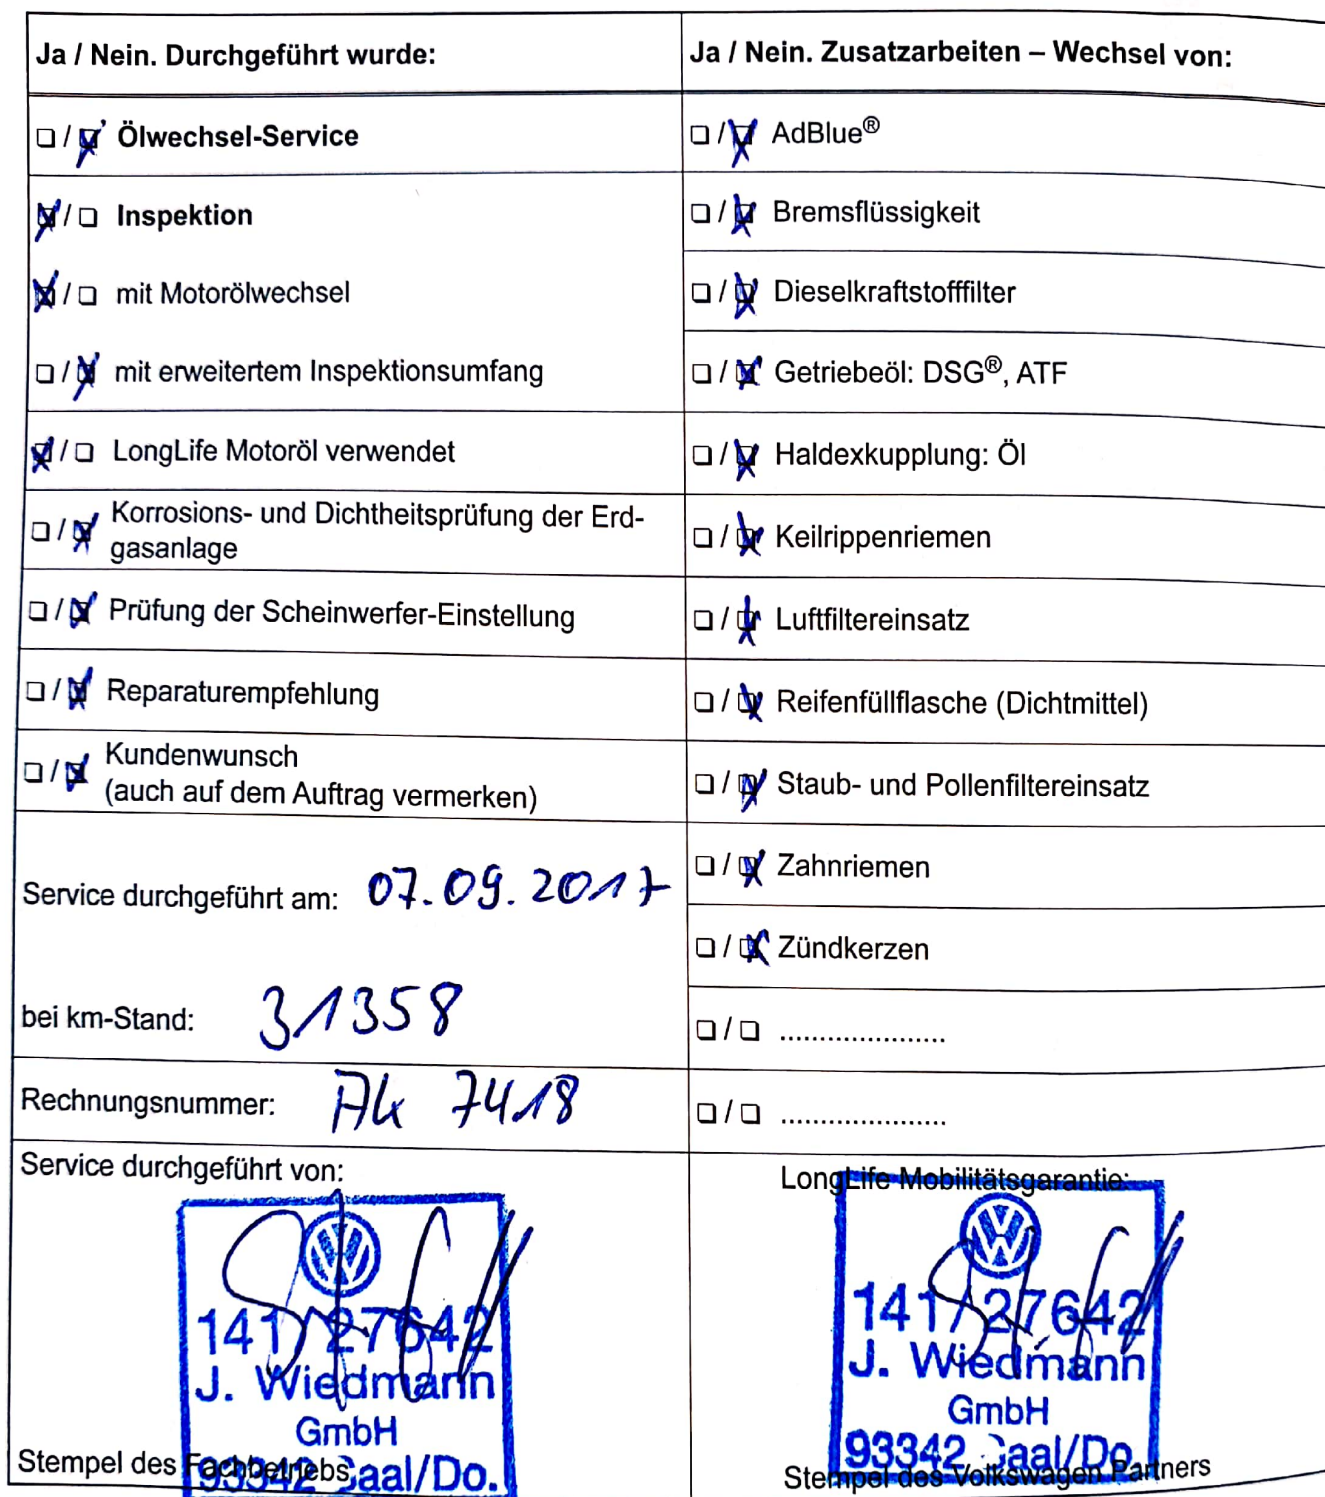 Ja / Nein. Durchgeführt wurde:
☐ / ☒ Ölwechsel-Service
☒ / ☐ Inspektion
☒ / ☐ mit Motorölwechsel
☐ / ☒ mit erweitertem Inspektionsumfang
☒ / ☐ LongLife Motoröl verwendet
☐ / ☒ Korrosions- und Dichtheitsprüfung der Erd-
gasanlage
☐ / ☒ Prüfung der Scheinwerfer-Einstellung
☐ / ☒ Reparaturempfehlung
☐ / ☒ Kundenwunsch
(auch auf dem Auftrag vermerken)
Service durchgeführt am: 07.09.2017
bei km-Stand: 31358
Rechnungsnummer: 7418
Service durchgeführt von:
141/27642
J. Wiedmann
GmbH
93342 Saal/Do.
Stempel des Fachbetriebs
Ja / Nein. Zusatzarbeiten – Wechsel von:
☐ / ☒ AdBlue®
☐ / ☒ Bremsflüssigkeit
☐ / ☒ Dieselkraftstofffilter
☐ / ☒ Getriebeöl: DSG®, ATF
☐ / ☒ Haldexkupplung: Öl
☐ / ☒ Keilrippenriemen
☐ / ☒ Luftfiltereinsatz
☐ / ☒ Reifenfüllflasche (Dichtmittel)
☐ / ☒ Staub- und Pollenfiltereinsatz
☐ / ☒ Zahnriemen
☐ / ☒ Zündkerzen
☐ / ☐ .....................
☐ / ☐ .....................
LongLife Mobilitätsgarantie:
141/27642
J. Wiedmann
GmbH
93342 Saal/Do.
Stempel des Volkswagen Partners